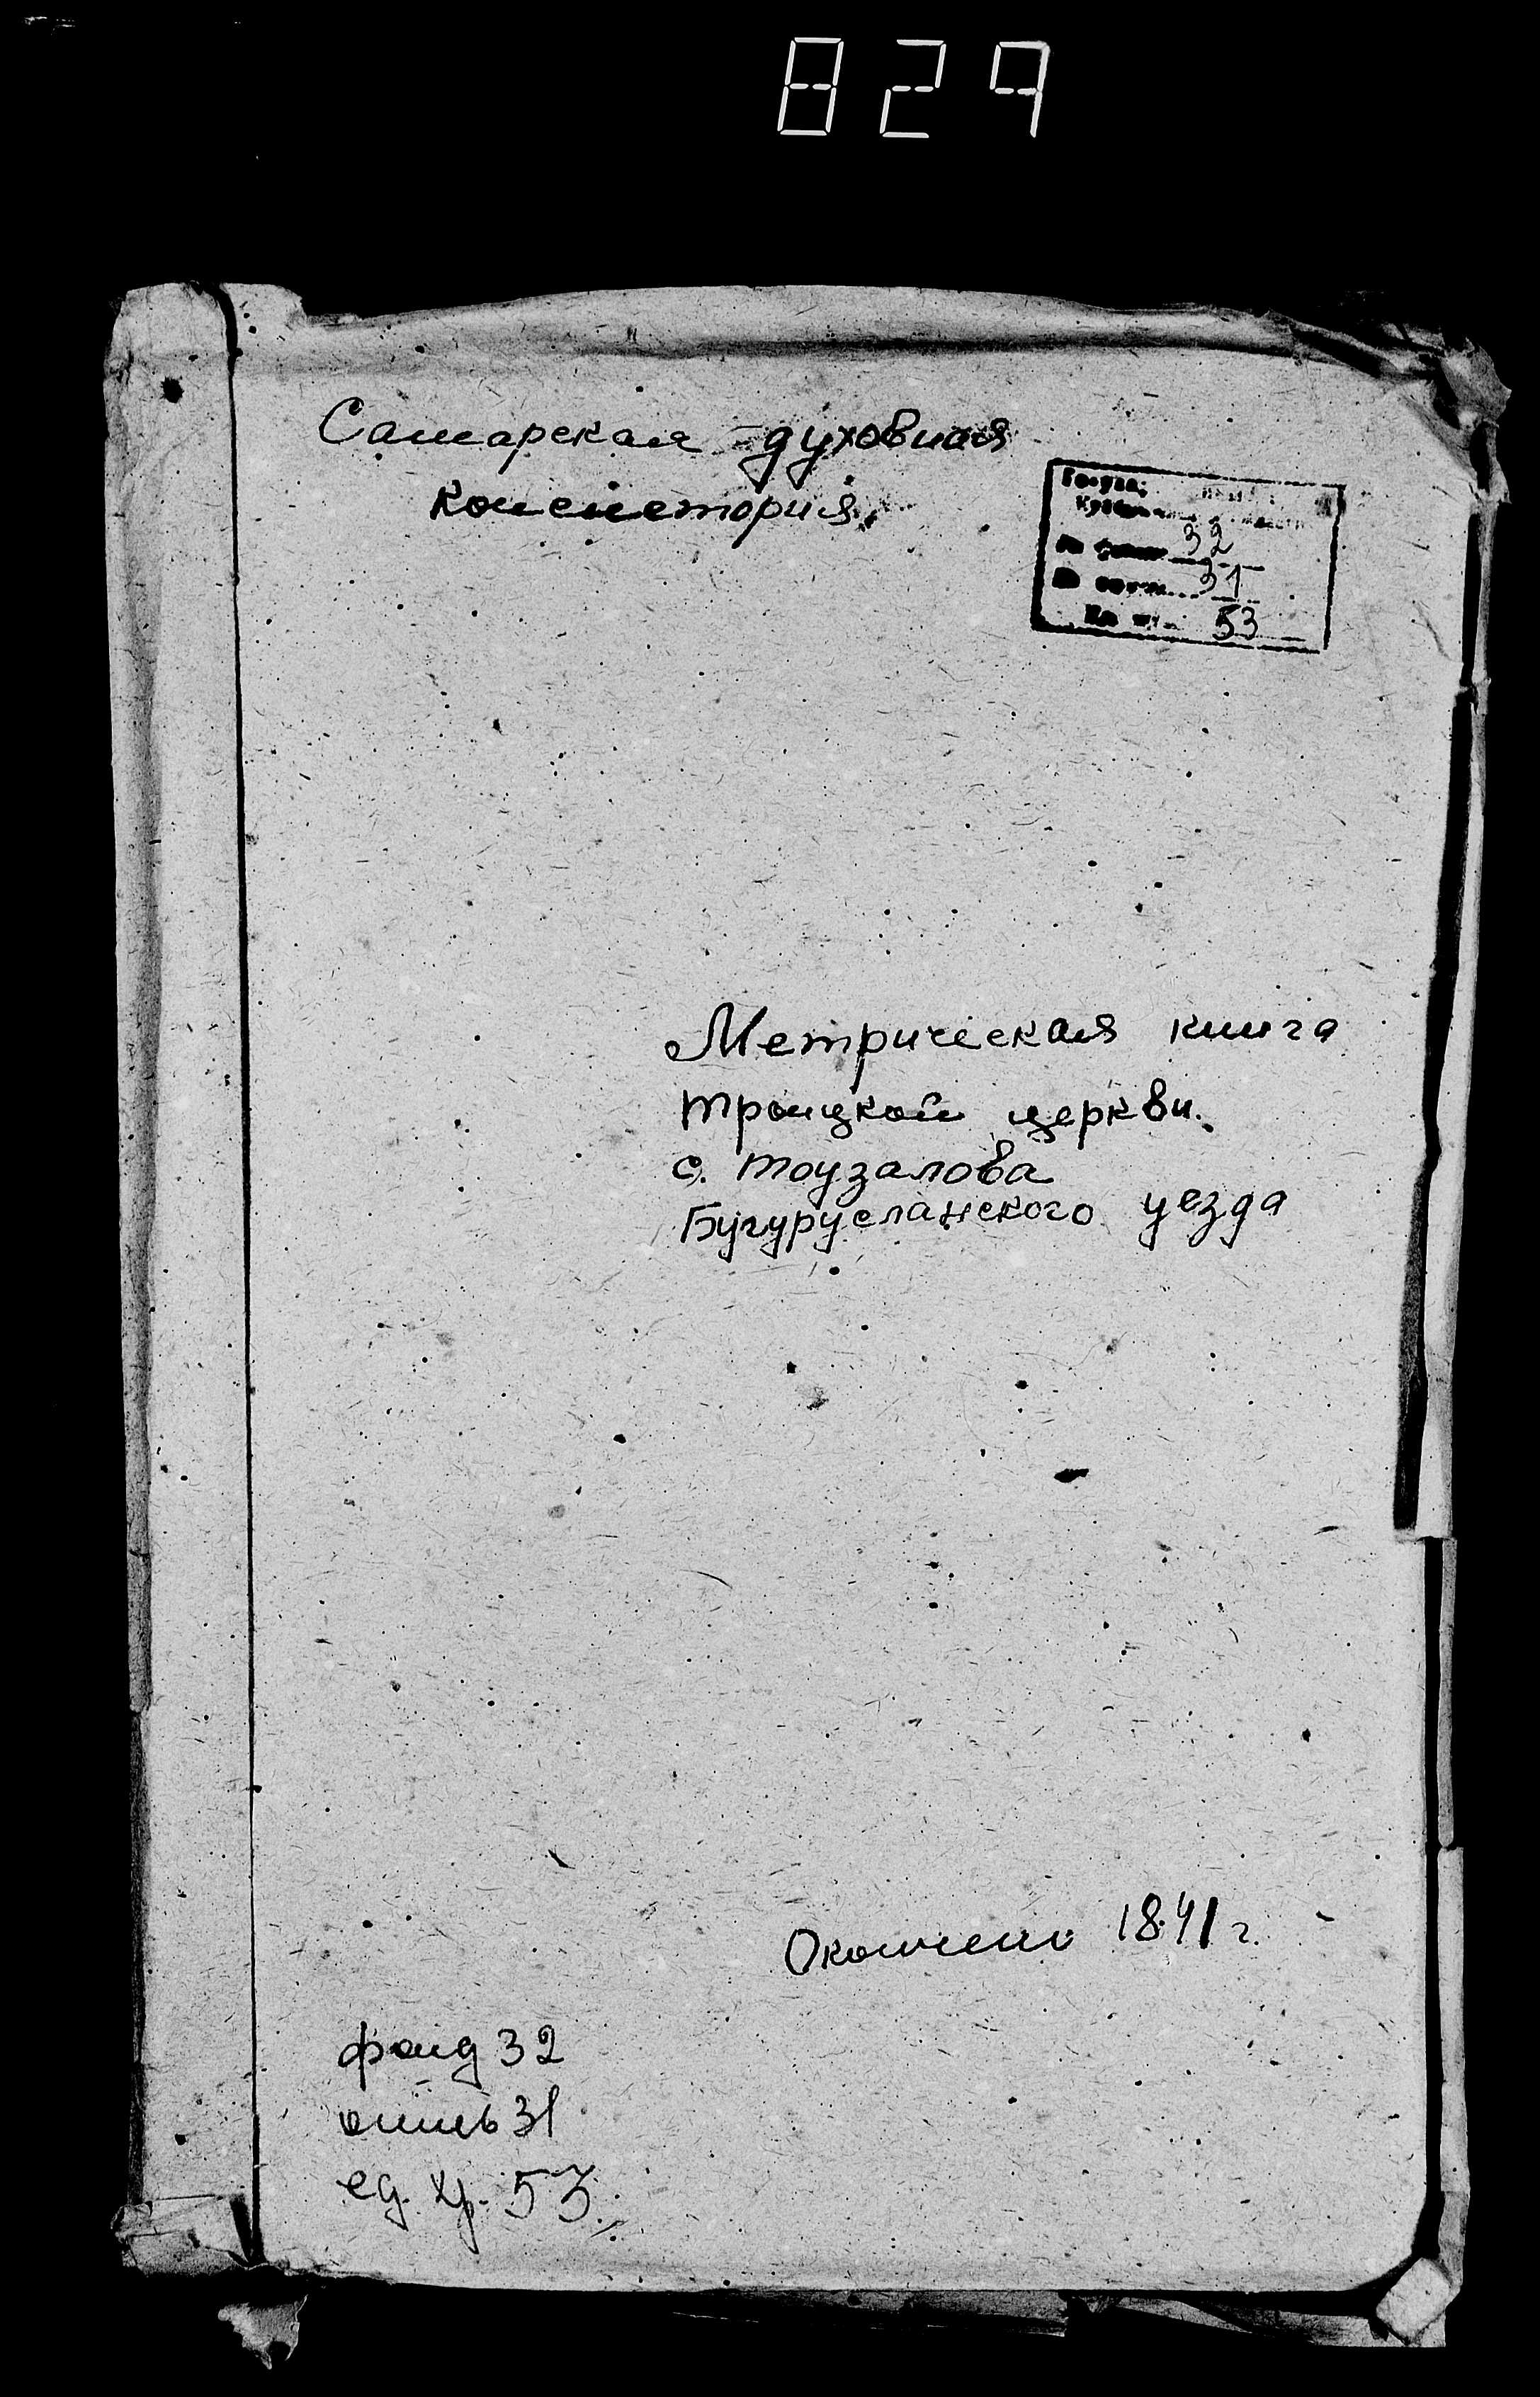 829
Самарская духовная
консистория
32
31
53
Метрическая книга
троицкой церкви
с. Тоузалова
Бугурусланского уезда
Окончено 1841 г.
фонд 32
опись 31
ед. хр. 53